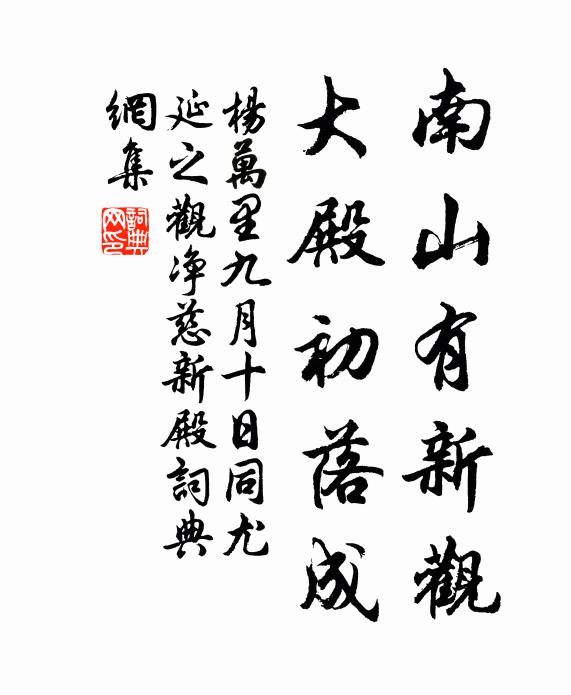 南山有新觀
大殿初落成
楊萬里九月十日同尤
延之觀净慈新殿詞典
網集
詞典
网印